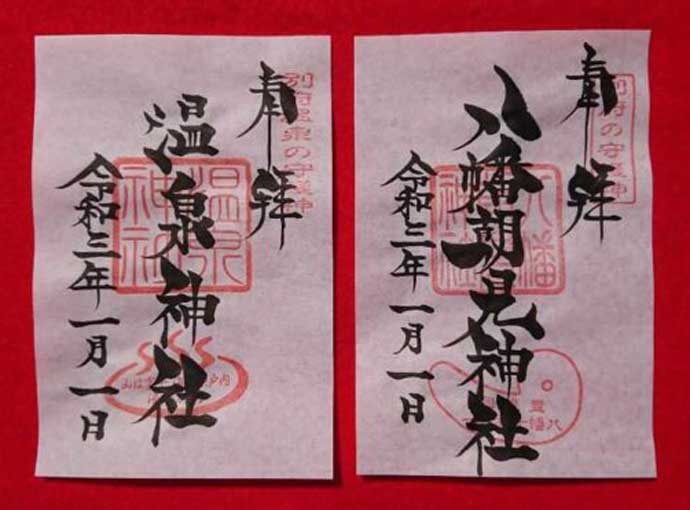 奉拝
別府温泉の守護神
温泉神社
温泉神社
令和三年一月一日
奉拝
別府の守護神
八幡朝見神社
令和三年一月一日